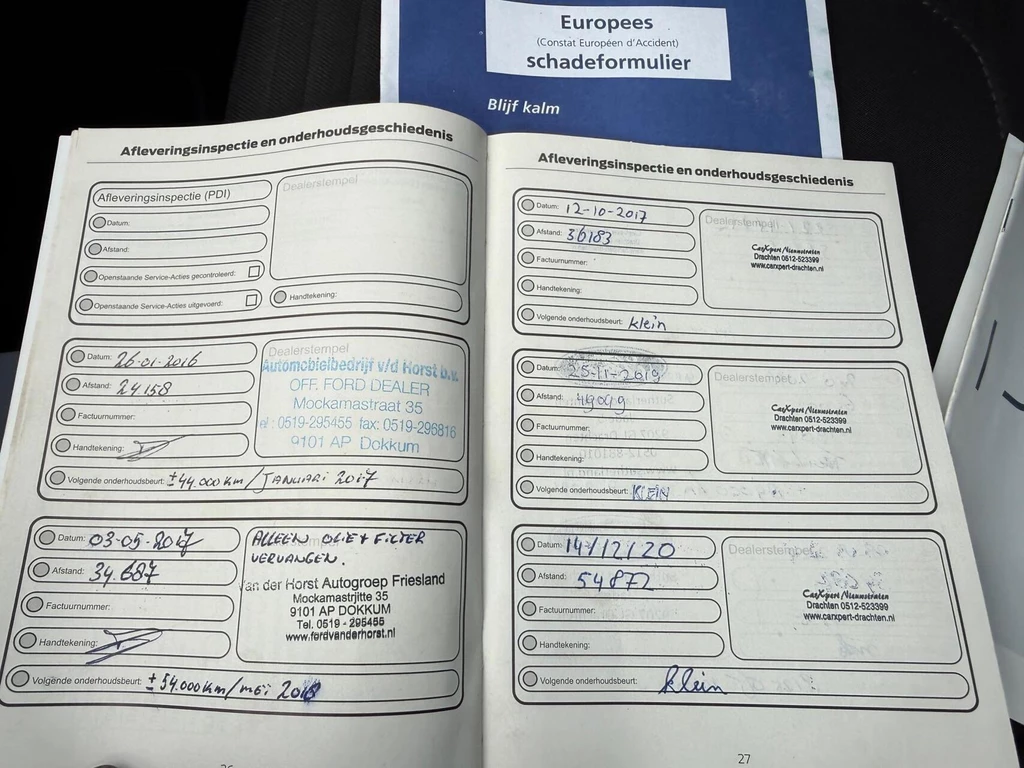 Europees
(Constat Européen d'Accident)
schadeformulier
Blijf kalm
Afleveringsinspectie en onderhoudsgeschiedenis
Afleveringsinspectie (PDI)
Dealerstempel
Datum:
Afstand:
Openstaande Service-Acties gecontroleerd:
Openstaande Service-Acties uitgevoerd:
Handtekening:
Datum: 26-01-2016
Dealerstempel
Automobielbedrijf v/d Horst b.v.
OFF. FORD DEALER
Mockamastraat 35
el : 0519-295455 fax: 0519-296816
9101 AP Dokkum
Afstand: 24.158
Factuurnummer:
Handtekening:
Volgende onderhoudsbeurt: ± 44.000 km / JANUARI 2017
Datum: 03-05-2017
ALLEEN OLIE + FILTER
VERVANGEN.
Afstand: 34.687
van der Horst Autogroep Friesland
Mockamastrjitte 35
9101 AP DOKKUM
Tel. 0519 - 295455
www.fordvanderhorst.nl
Factuurnummer:
Handtekening:
Volgende onderhoudsbeurt: ± 54.000 km / mei 2018
Afleveringsinspectie en onderhoudsgeschiedenis
Datum: 12-10-2017
Dealerstempel
Afstand: 36183
CarXpert Nieuwstraten
Drachten 0512-523399
www.carxpert-drachten.nl
Factuurnummer:
Handtekening:
Volgende onderhoudsbeurt: klein
Datum: 25-11-2019
Dealerstempel
Afstand: 49049
CarXpert Nieuwstraten
Drachten 0512-523399
www.carxpert-drachten.nl
Factuurnummer:
Handtekening:
Volgende onderhoudsbeurt: KLEIN
Datum: 14/12/20
Dealerstempel
Afstand: 54872
CarXpert Nieuwstraten
Drachten 0512-523399
www.carxpert-drachten.nl
Factuurnummer:
Handtekening:
Volgende onderhoudsbeurt: klein
27